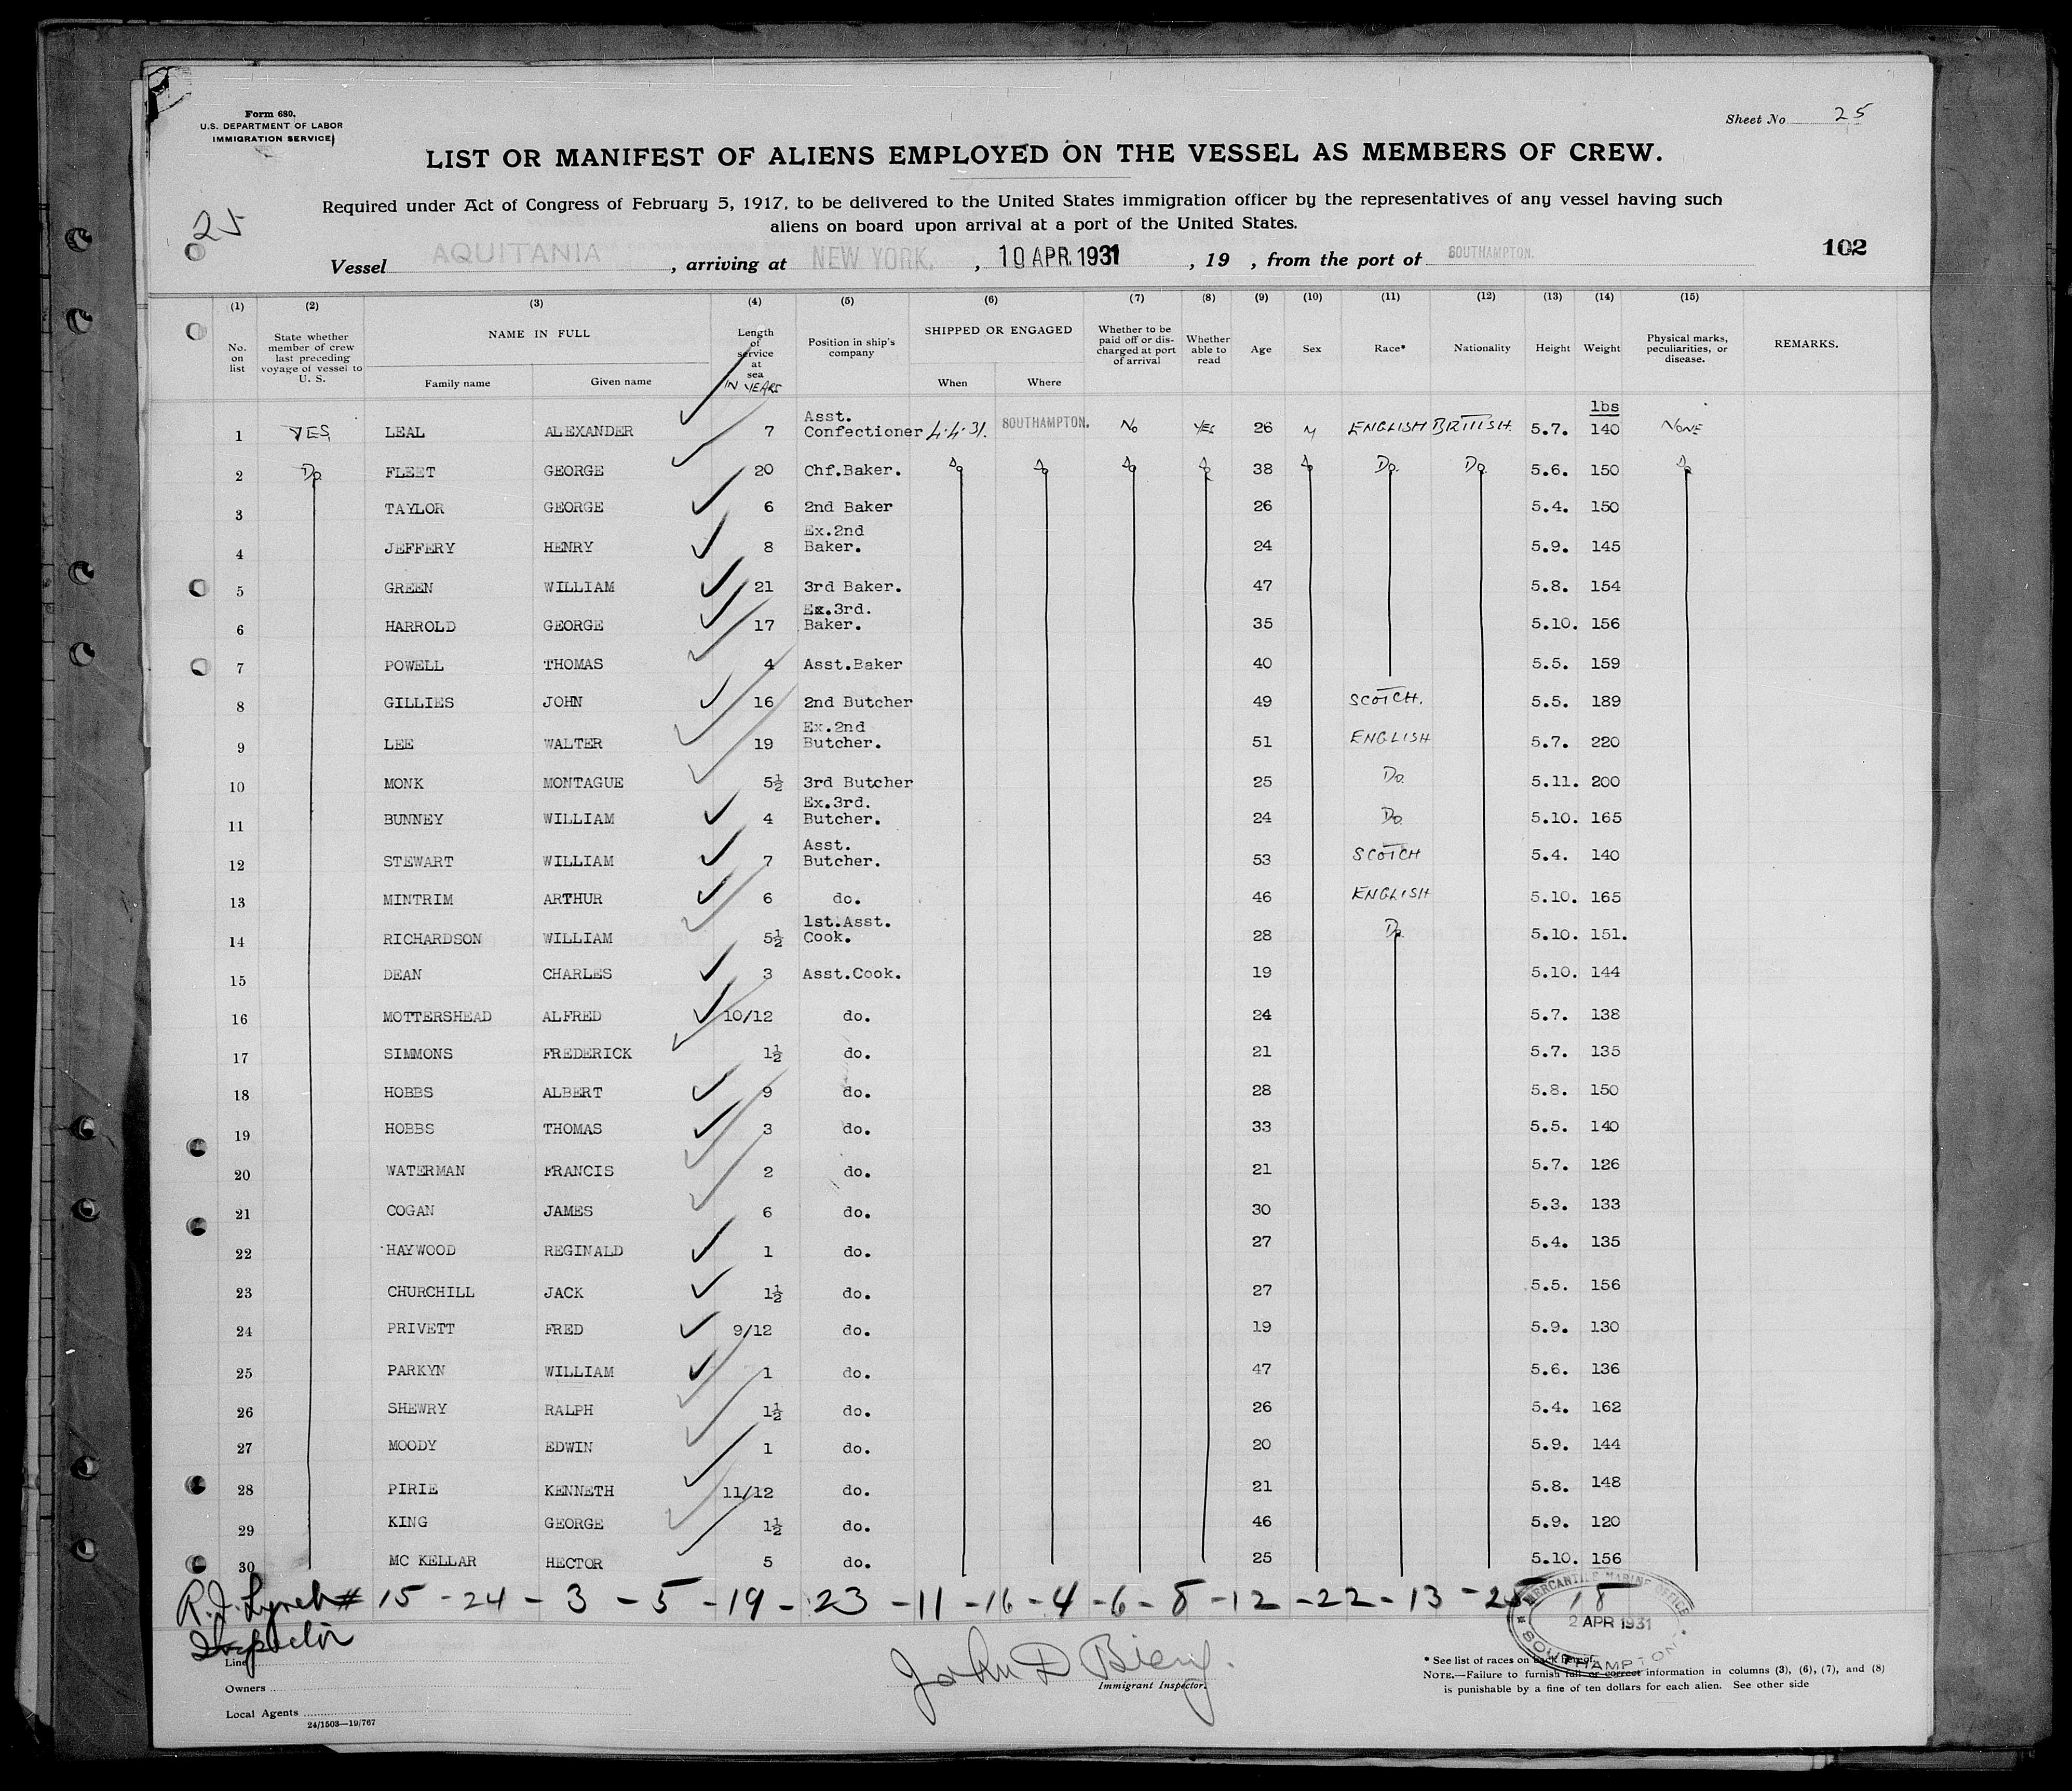 Form 680.
U.S. DEPARTMENT OF LABOR
IMMIGRATION SERVICE
Sheet No 25
LIST OR MANIFEST OF ALIENS EMPLOYED ON THE VESSEL AS MEMBERS OF CREW.
Required under Act of Congress of February 5, 1917, to be delivered to the United States immigration officer by the representatives of any vessel having such
aliens on board upon arrival at a port of the United States.
25
102
Vessel AQUITANIA, arriving at NEW YORK., 10 APR. 1931, 19 , from the port of SOUTHAMPTON.
(1) (2) (3) (4) (5) (6) (7) (8) (9) (10) (11) (12) (13) (14) (15)
No. on list
State whether member of crew last preceding voyage of vessel to U. S.
NAME IN FULL
Family name Given name
Length of service at sea IN YEARS
Position in ship's company
SHIPPED OR ENGAGED
When Where
Whether to be paid off or discharged at port of arrival
Whether able to read
Age Sex Race* Nationality Height Weight
Physical marks, peculiarities, or disease.
REMARKS.
lbs
1 YES LEAL ALEXANDER 7 Asst. Confectioner 4.4.31. SOUTHAMPTON. No YES 26 M ENGLISH BRITISH. 5.7. 140 NONE
2 Do FLEET GEORGE 20 Chf.Baker. Do Do Do Do 38 Do Do. Do. 5.6. 150 Do
3 TAYLOR GEORGE 6 2nd Baker 26 5.4. 150
4 JEFFERY HENRY 8 Ex.2nd Baker. 24 5.9. 145
5 GREEN WILLIAM 21 3rd Baker. 47 5.8. 154
6 HARROLD GEORGE 17 Ex.3rd. Baker. 35 5.10. 156
7 POWELL THOMAS 4 Asst.Baker 40 5.5. 159
8 GILLIES JOHN 16 2nd Butcher 49 SCOTCH. 5.5. 189
9 LEE WALTER 19 Ex.2nd Butcher. 51 ENGLISH 5.7. 220
10 MONK MONTAGUE 5½ 3rd Butcher 25 Do. 5.11. 200
11 BUNNEY WILLIAM 4 Ex.3rd. Butcher. 24 Do. 5.10. 165
12 STEWART WILLIAM 7 Asst. Butcher. 53 SCOTCH 5.4. 140
13 MINTRIM ARTHUR 6 do. 46 ENGLISH 5.10. 165
14 RICHARDSON WILLIAM 5½ 1st.Asst. Cook. 28 Do. 5.10. 151.
15 DEAN CHARLES 3 Asst.Cook. 19 5.10. 144
16 MOTTERSHEAD ALFRED 10/12 do. 24 5.7. 138
17 SIMMONS FREDERICK 1½ do. 21 5.7. 135
18 HOBBS ALBERT 9 do. 28 5.8. 150
19 HOBBS THOMAS 3 do. 33 5.5. 140
20 WATERMAN FRANCIS 2 do. 21 5.7. 126
21 COGAN JAMES 6 do. 30 5.3. 133
22 HAYWOOD REGINALD 1 do. 27 5.4. 135
23 CHURCHILL JACK 1½ do. 27 5.5. 156
24 PRIVETT FRED 9/12 do. 19 5.9. 130
25 PARKYN WILLIAM 1 do. 47 5.6. 136
26 SHEWRY RALPH 1½ do. 26 5.4. 162
27 MOODY EDWIN 1 do. 20 5.9. 144
28 PIRIE KENNETH 11/12 do. 21 5.8. 148
29 KING GEORGE 1½ do. 46 5.9. 120
30 MC KELLAR HECTOR 5 do. 25 5.10. 156
R.J. Lynch # 15 - 24 - 3 - 5 - 19 - 23 - 11 - 16 - 4 - 6 - 8 - 12 - 22 - 13 - 25 18
Inspector
MERCANTILE MARINE OFFICE
2 APR 1931
SOUTHAMPTON
Line
Owners
Local Agents
24/1503—19/767
John D
Immigrant Inspector.
* See list of races on back hereof.
NOTE.—Failure to furnish full or correct information in columns (3), (6), (7), and (8)
is punishable by a fine of ten dollars for each alien. See other side